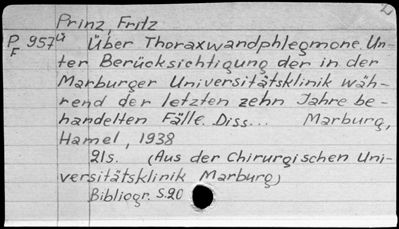 Prinz, Fritz
P 957 ü Über Thoraxwandphlegmone. Un-
F ter Berücksichtigung der in der
Marburger Universitätsklinik wäh-
rend der letzten zehn Jahre be-
handelten Fälle. Diss... Marburg,
Hamel, 1938
21s. (Aus der Chirurgischen Uni-
versitätsklinik Marburg)
Bibliogr. S.20